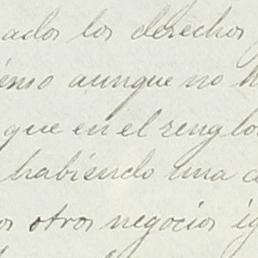 ados los derechos
enso aunque no h
que en el renglo
habiendo una c
os otros negocios ig